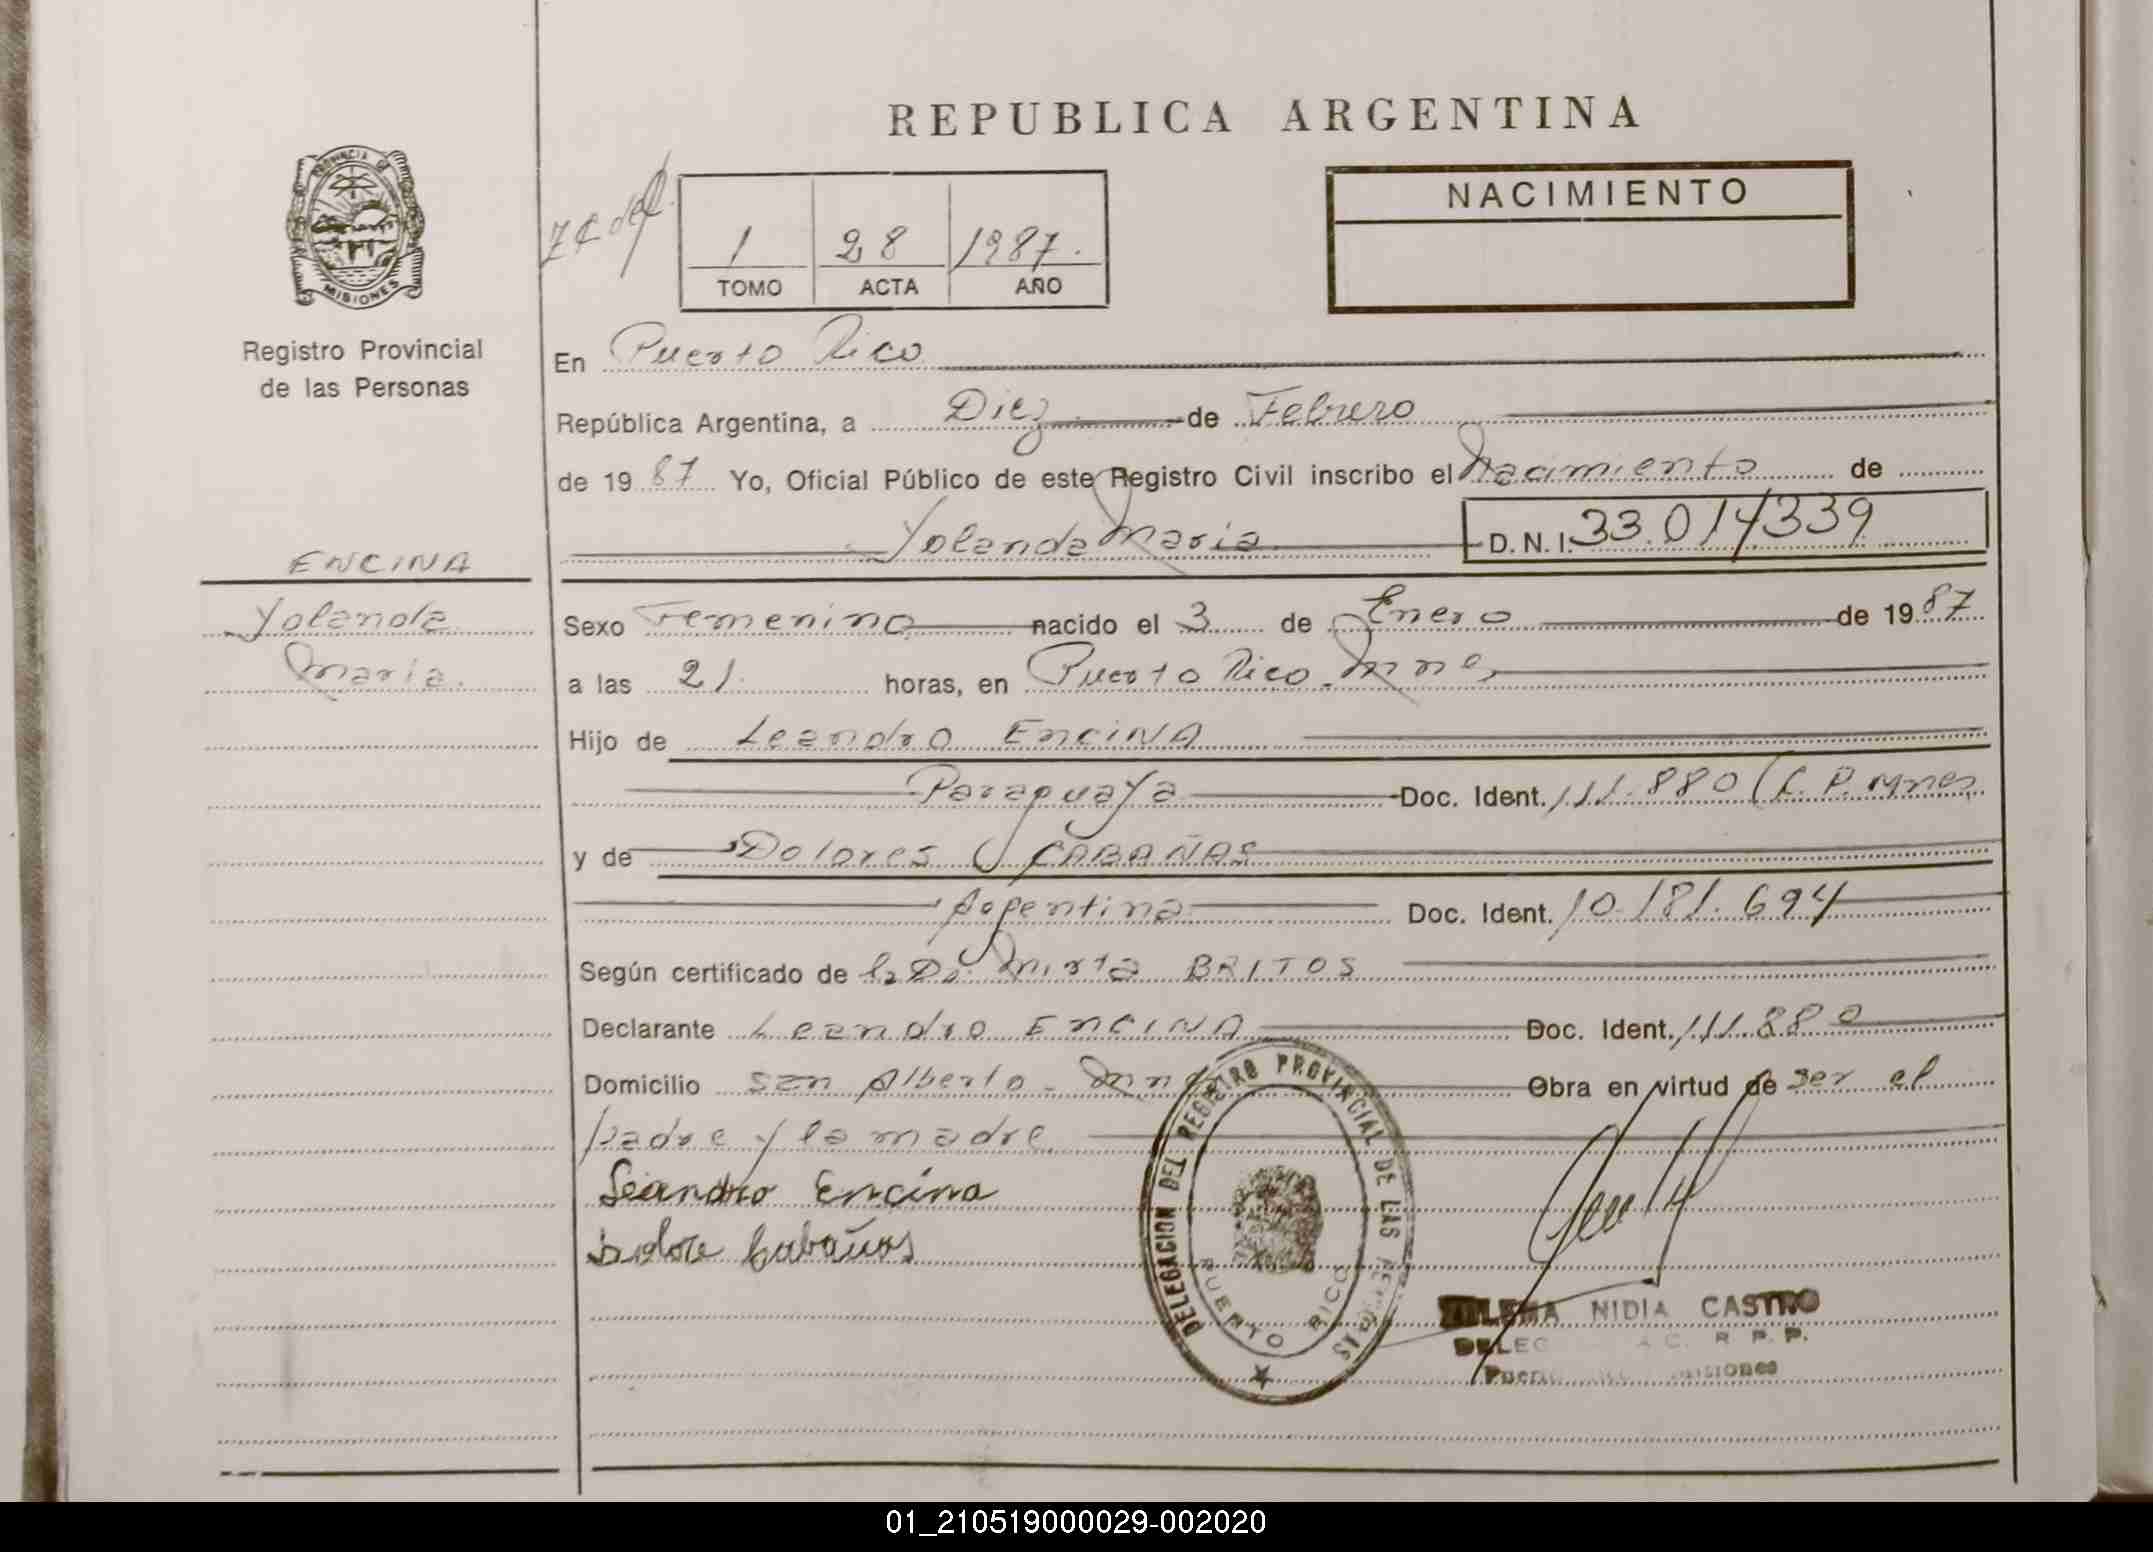 REPUBLICA ARGENTINA
PROVINCIA DE
MISIONES
Registro Provincial
de las Personas
1 28 1987.
TOMO ACTA AÑO
NACIMIENTO
En Puerto Rico
República Argentina, a Diez de Febrero
de 1987 Yo, Oficial Público de este Registro Civil inscribo el Nacimiento de
Yolanda Maria D.N.I. 33.014339
ENCINA
Yolanda
Maria.
Sexo Femenino nacido el 3 de Enero de 1987
a las 21 horas, en Puerto Rico - Mnes
Hijo de Leandro ENCINA
Paraguaya Doc. Ident. 111.880 (C.P. Mnes
y de Dolores CABAÑAS
Argentina Doc. Ident. 10.181.694
Según certificado de la Da. Mirta BRITOS
Declarante Leandro ENCINA Doc. Ident. 111.880
Domicilio San Alberto - Obra en virtud de ser el
padre y la madre.
Leandro Encina
Cabañas
DELEGACION DEL REGISTRO PROVINCIAL DE LAS
PUERTO RICO
NIDIA CASTRO
R. P. P.
01_210519000029-002020